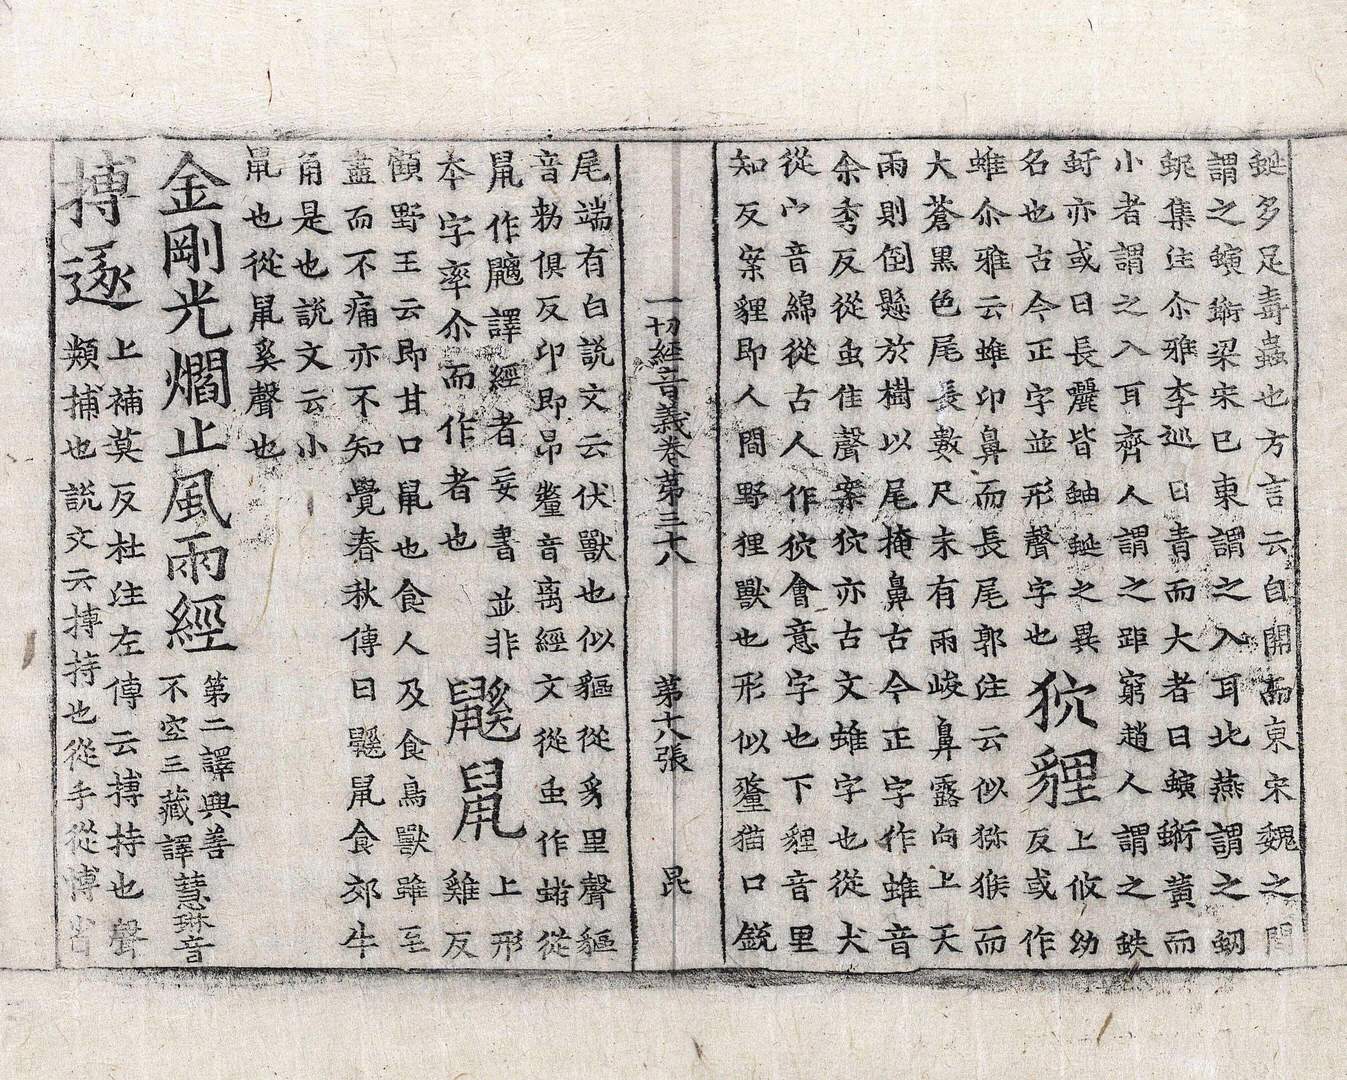 蜒多足毒蟲也方言云自關而東宋魏之間
謂之螾𧊔梁宋已東謂之入耳北燕謂之蚭
蚭集注尒雅李巡曰青而大者曰螾𧊔黃而
小者謂之入耳齊人謂之距窮趙人謂之蚨
虶亦或曰長𧕯皆蚰蜒之異
名也古今正字並形聲字也
狖貍
上攸幼
反或作
蜼尒雅云蜼卬鼻而長尾郭注云似猕猴而
大蒼黑色尾長數尺末有兩岐鼻露向上天
雨則倒懸於樹以尾掩鼻古今正字作蜼音
余季反從虫隹聲案狖亦古文蜼字也從犬
從宀音綿從古人作狖會意字也下貍音里
知反案貍即人間野狸獸也形似貓口銳
一切經音義卷第三十八 第十八張 昆
尾端有白說文云伏獸也似貙從豸里聲貙
音勑俱反卬即昂音离經文從虫作從
鼠作譯經者妄書並非
本字率尒而作者也
鼷鼠
上形
雞反
顧野王云即甘口鼠也食人及食鳥獸雖至
盡而不痛亦不知覺春秋傳曰鼷鼠食郊牛
角是也說文云小
鼠也從鼠奚聲也
金剛光爓止風雨經
第二譯與善
不空三藏譯慧琳音
摶逐
上補莫反杜注左傳云摶持也聲
類捕也說文云摶持也從手從博省